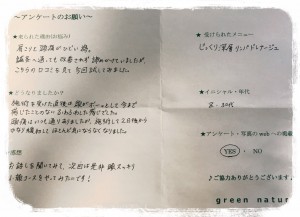 ～アンケートのお願い～
★来られた理由(お悩み)
肩こりと頭痛がひどい為。
鍼灸へ通っても改善せず諦めかけていましたが、
こちらの口コミを見て今回試してみました。
★どうなりましたか?
施術を受けた直後は頭がボーッとして今まで
感じたことのないふわふわした感じでした。
頭痛はいつも通りありましたが、施術して2日後から
かなり緩和してほとんど気にならなくなりました。
感想
お話しを聞いてみて、次回は是非 頭スッキリ
コースをやってみたいです!
★受けられたメニュー
じっくり深層リンパドレナージュ
★イニシャル・年代
30代
★アンケート・写真のwebへの掲載
YES ・ NO
♪ご協力ありがとうございます♪
green natur